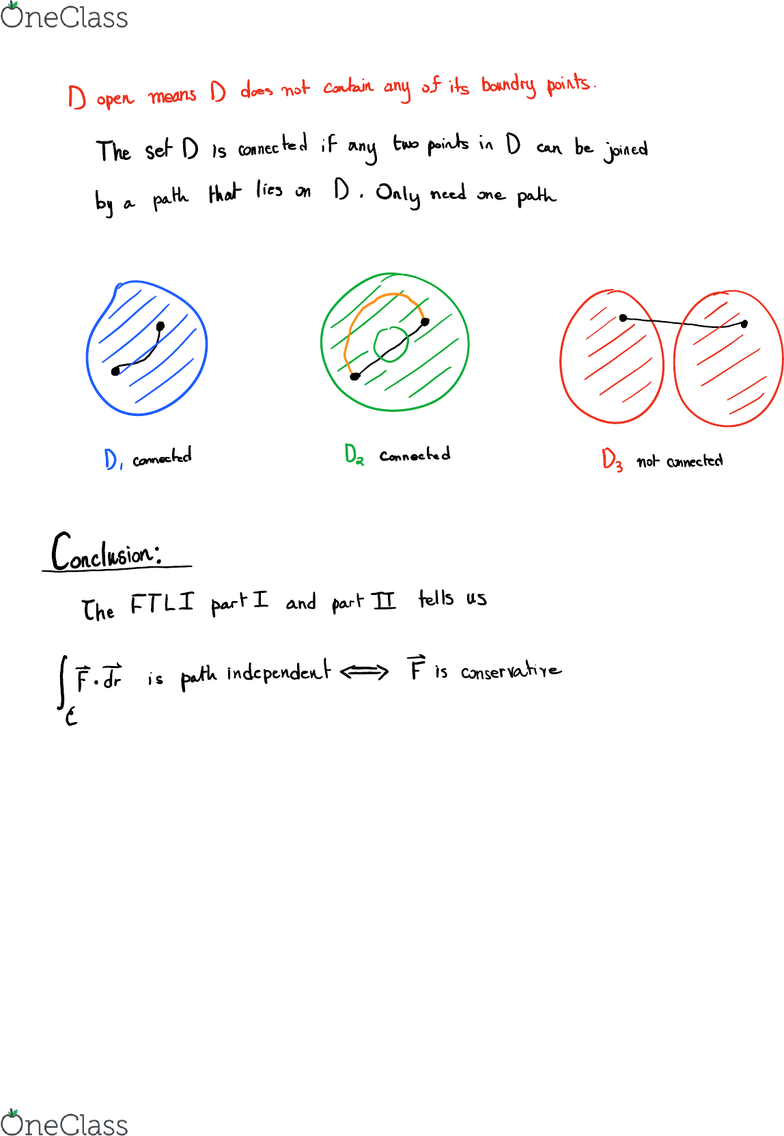 OneClass
D open means D does not contain any of its boundry points.
The set D is connected if any two points in D can be joined
by a path that lies on D. Only need one path
D₁ connected D₂ connected D₃ not connected
Conclusion:
The FTLI part I and part II tells us
∫_C F⃗ · d⃗r is path independent ⟺ F⃗ is conservative
OneClass